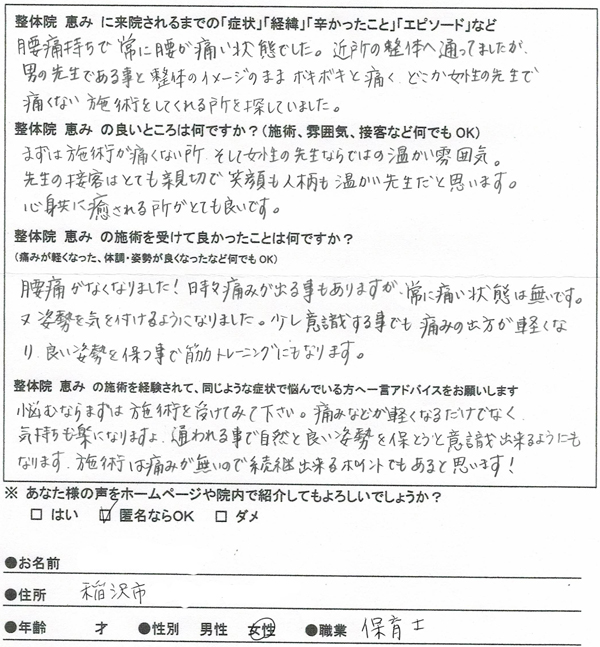 整体院 恵み に来院されるまでの「症状」「経緯」「辛かったこと」「エピソード」など
腰痛持ちで常に腰が痛い状態でした。近所の整体へ通ってましたが、
男の先生である事と整体のイメージのままボキボキと痛く、どこか女性の先生で
痛くない施術をしてくれる所を探していました。
整体院 恵み の良いところは何ですか？（施術、雰囲気、接客など何でもOK）
まずは施術が痛くない所、そして女性の先生ならではの温かい雰囲気。
先生の接客はとても親切で笑顔も人柄も温かい先生だと思います。
心身共に癒される所がとても良いです。
整体院 恵み の施術を受けて良かったことは何ですか？
（痛みが軽くなった、体調・姿勢が良くなったなど何でもOK）
腰痛がなくなりました！時々痛みが出る事もありますが、常に痛い状態は無いです。
又姿勢を気を付けるようになりました。少し意識する事でも痛みの出方が軽くな
り、良い姿勢を保つ事で筋力トレーニングにもなります。
整体院 恵み の施術を経験されて、同じような症状で悩んでいる方へ一言アドバイスをお願いします
悩むならまずは施術を受けてみて下さい。痛みなどが軽くなるだけでなく、
気持ちも楽になりますよ。通われる事で自然と良い姿勢を保とうと意識出来るようにも
なります。施術は痛みが無いので続継出来るポイントでもあると思います！
※ あなた様の声をホームページや院内で紹介してもよろしいでしょうか？
□ はい ☑ 匿名ならOK □ ダメ
●お名前
●住所 稲沢市
●年齢 才 ●性別 男性 女性 ●職業 保育士